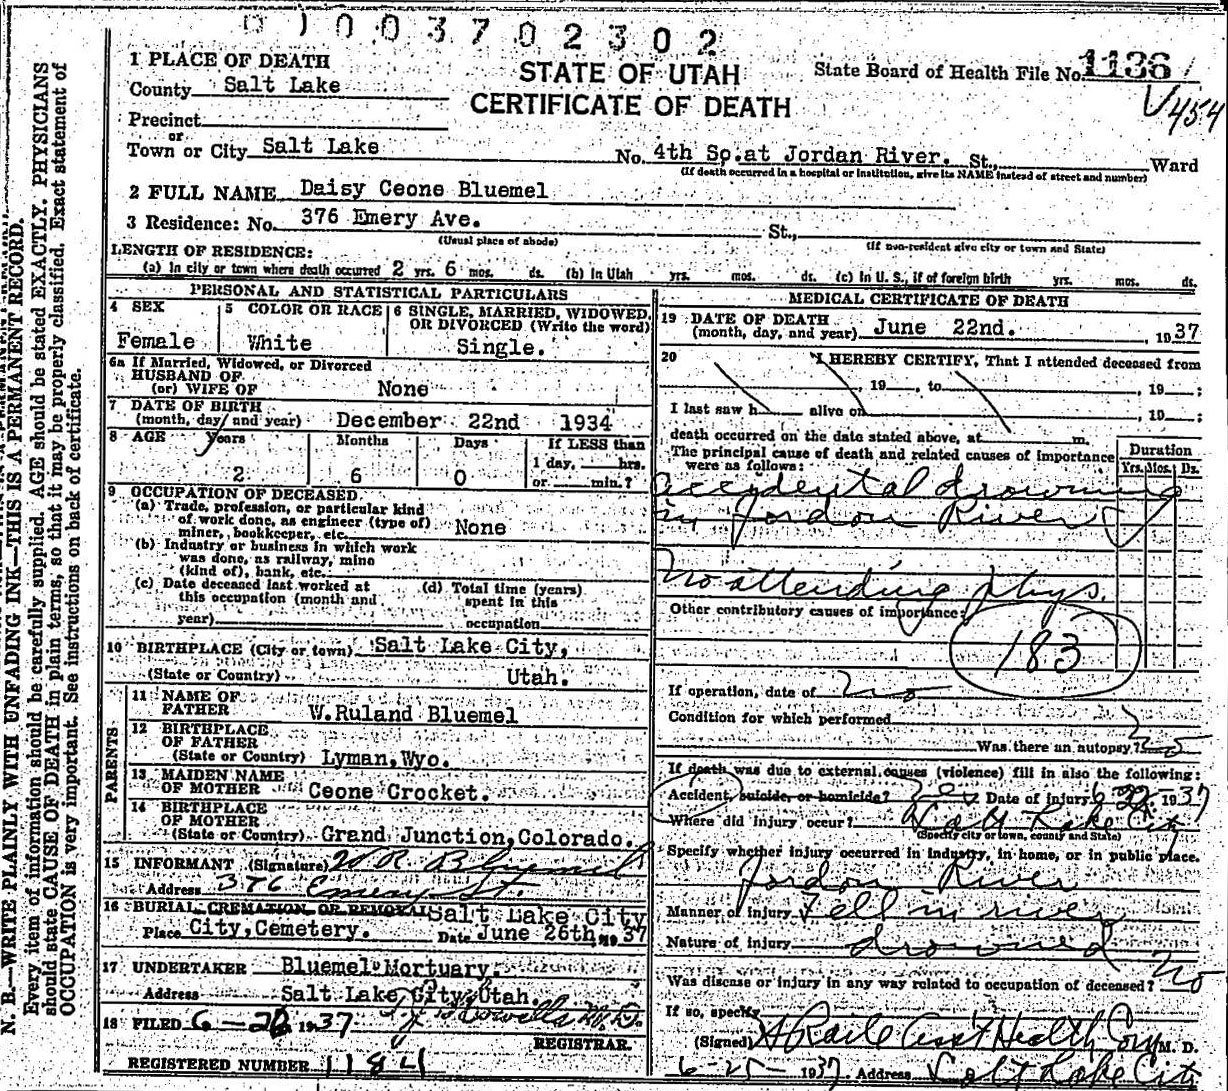 0 1 0 0 3 7 0 2 3 0 2
1 PLACE OF DEATH
County Salt Lake
Precinct
or
Town or City Salt Lake
STATE OF UTAH
CERTIFICATE OF DEATH
State Board of Health File No. 1136
V454
No. 4th So. at Jordan River. St., Ward
(If death occurred in a hospital or institution, give its NAME instead of street and number)
2 FULL NAME Daisy Ceone Bluemel
3 Residence: No. 376 Emery Ave. St.,
(Usual place of abode) (If non-resident give city or town and State)
LENGTH OF RESIDENCE:
(a) In city or town where death occurred 2 yrs. 6 mos. ds. (b) In Utah yrs. mos. ds. (c) In U. S., if of foreign birth yrs. mos. ds.
PERSONAL AND STATISTICAL PARTICULARS
4 SEX
Female
5 COLOR OR RACE
White
6 SINGLE, MARRIED, WIDOWED,
OR DIVORCED (Write the word)
Single.
6a If Married, Widowed, or Divorced
HUSBAND OF
(or) WIFE OF None
7 DATE OF BIRTH
(month, day, and year) December 22nd 1934
8 AGE Years Months Days If LESS than
1 day, hrs.
2 6 0 or min.?
9 OCCUPATION OF DECEASED
(a) Trade, profession, or particular kind
of work done, as engineer (type of)
miner, bookkeeper, etc. None
(b) Industry or business in which work
was done, as railway, mine
(kind of), bank, etc.
(c) Date deceased last worked at
this occupation (month and
year)
(d) Total time (years)
spent in this
occupation
10 BIRTHPLACE (City or town) Salt Lake City,
(State or Country) Utah.
PARENTS
11 NAME OF
FATHER W.Ruland Bluemel
12 BIRTHPLACE
OF FATHER
(State or Country) Lyman,Wyo.
13 MAIDEN NAME
OF MOTHER Ceone Crocket.
14 BIRTHPLACE
OF MOTHER
(State or Country) Grand Junction,Colorado.
15 INFORMANT (Signature) W. R. Bluemel
Address 376 Emery St.
16 BURIAL, CREMATION OR REMOVAL Salt Lake City
Place City,Cemetery. Date June 26th, 1937
17 UNDERTAKER Bluemel Mortuary.
Address Salt Lake City,Utah.
18 FILED 6-26 1937
REGISTRAR.
REGISTERED NUMBER 1184
MEDICAL CERTIFICATE OF DEATH
19 DATE OF DEATH
(month, day, and year) June 22nd. 1937
20 I HEREBY CERTIFY, That I attended deceased from
, 19 , to , 19 ;
I last saw h alive on , 19 ;
death occurred on the date stated above, at m.
The principal cause of death and related causes of importance
were as follows:
Duration
Yrs. Mos. Ds.
accidental drowning
in Jordon River
No attending phys.
Other contributory causes of importance:
183
If operation, date of No
Condition for which performed
Was there an autopsy? No
If death was due to external causes (violence) fill in also the following:
Accident, suicide, or homicide? Yes Date of injury 6-22, 1937
Where did injury occur? Salt Lake City
(Specify city or town, county and State)
Specify whether injury occurred in industry, in home, or in public place.
Jordon River
Manner of injury Fell in river
Nature of injury drowned
Was disease or injury in any way related to occupation of deceased? No
If so, specify
(Signed) Ass't Health Com M. D.
6-25 1937 Address Salt Lake City
N. B.—WRITE PLAINLY WITH UNFADING INK—THIS IS A PERMANENT RECORD.
Every item of information should be carefully supplied. AGE should be stated EXACTLY. PHYSICIANS
should state CAUSE OF DEATH in plain terms, so that it may be properly classified. Exact statement of
OCCUPATION is very important. See instructions on back of certificate.